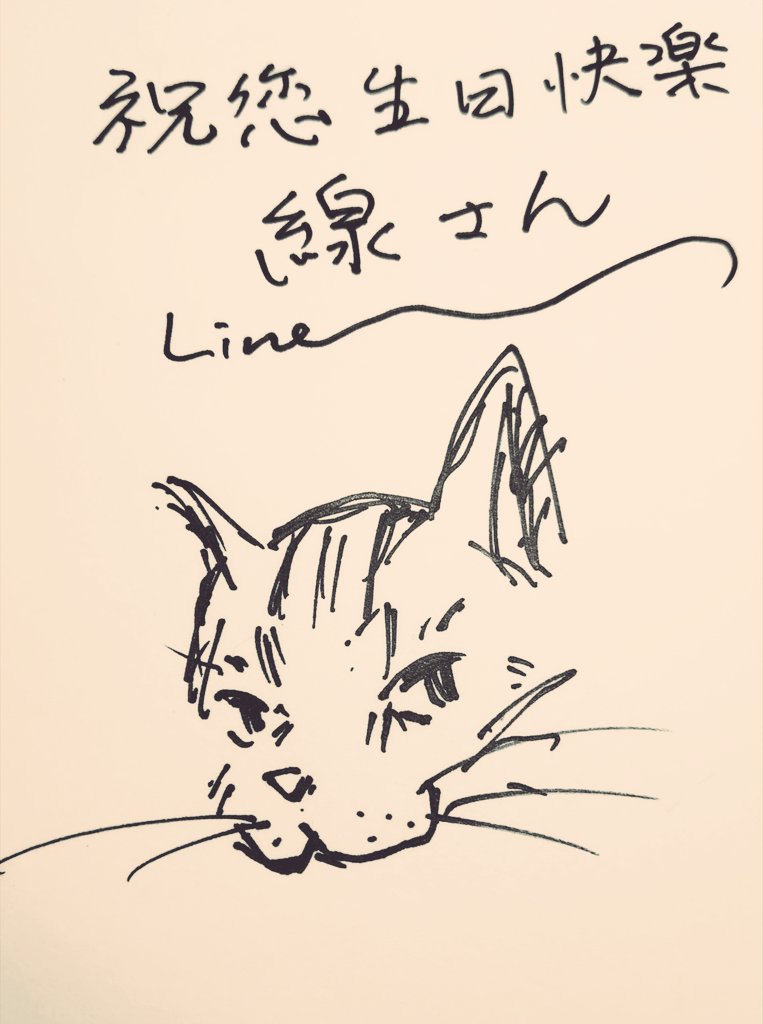 祝您生日快楽
線さん
Line